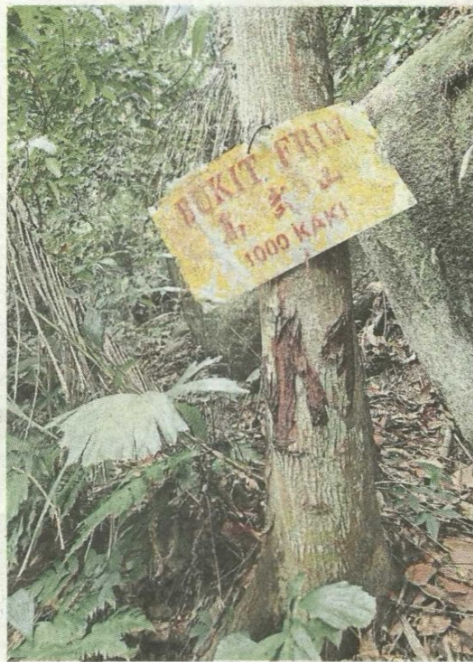 BUKIT FRIM
1000 KAKI